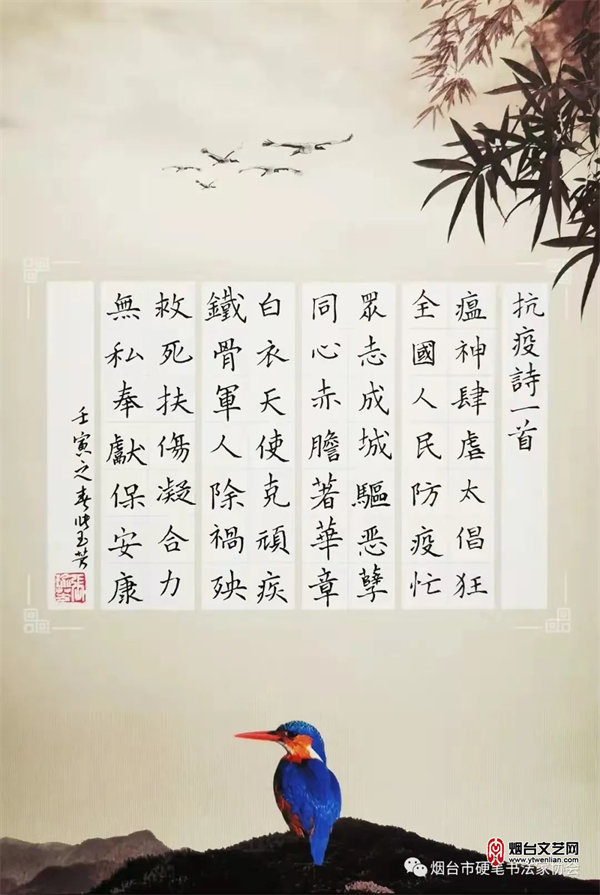 抗疫詩一首
瘟神肆虐太倡狂
全國人民防疫忙
眾志成城驅恶孽
同心赤膽著華章
白衣天使克頑疾
鐵骨軍人除禍殃
救死扶傷凝合力
無私奉獻保安康
壬寅之春張玉芳
烟台市硬笔书法家协会
烟台文艺网
www.ytwenlian.com